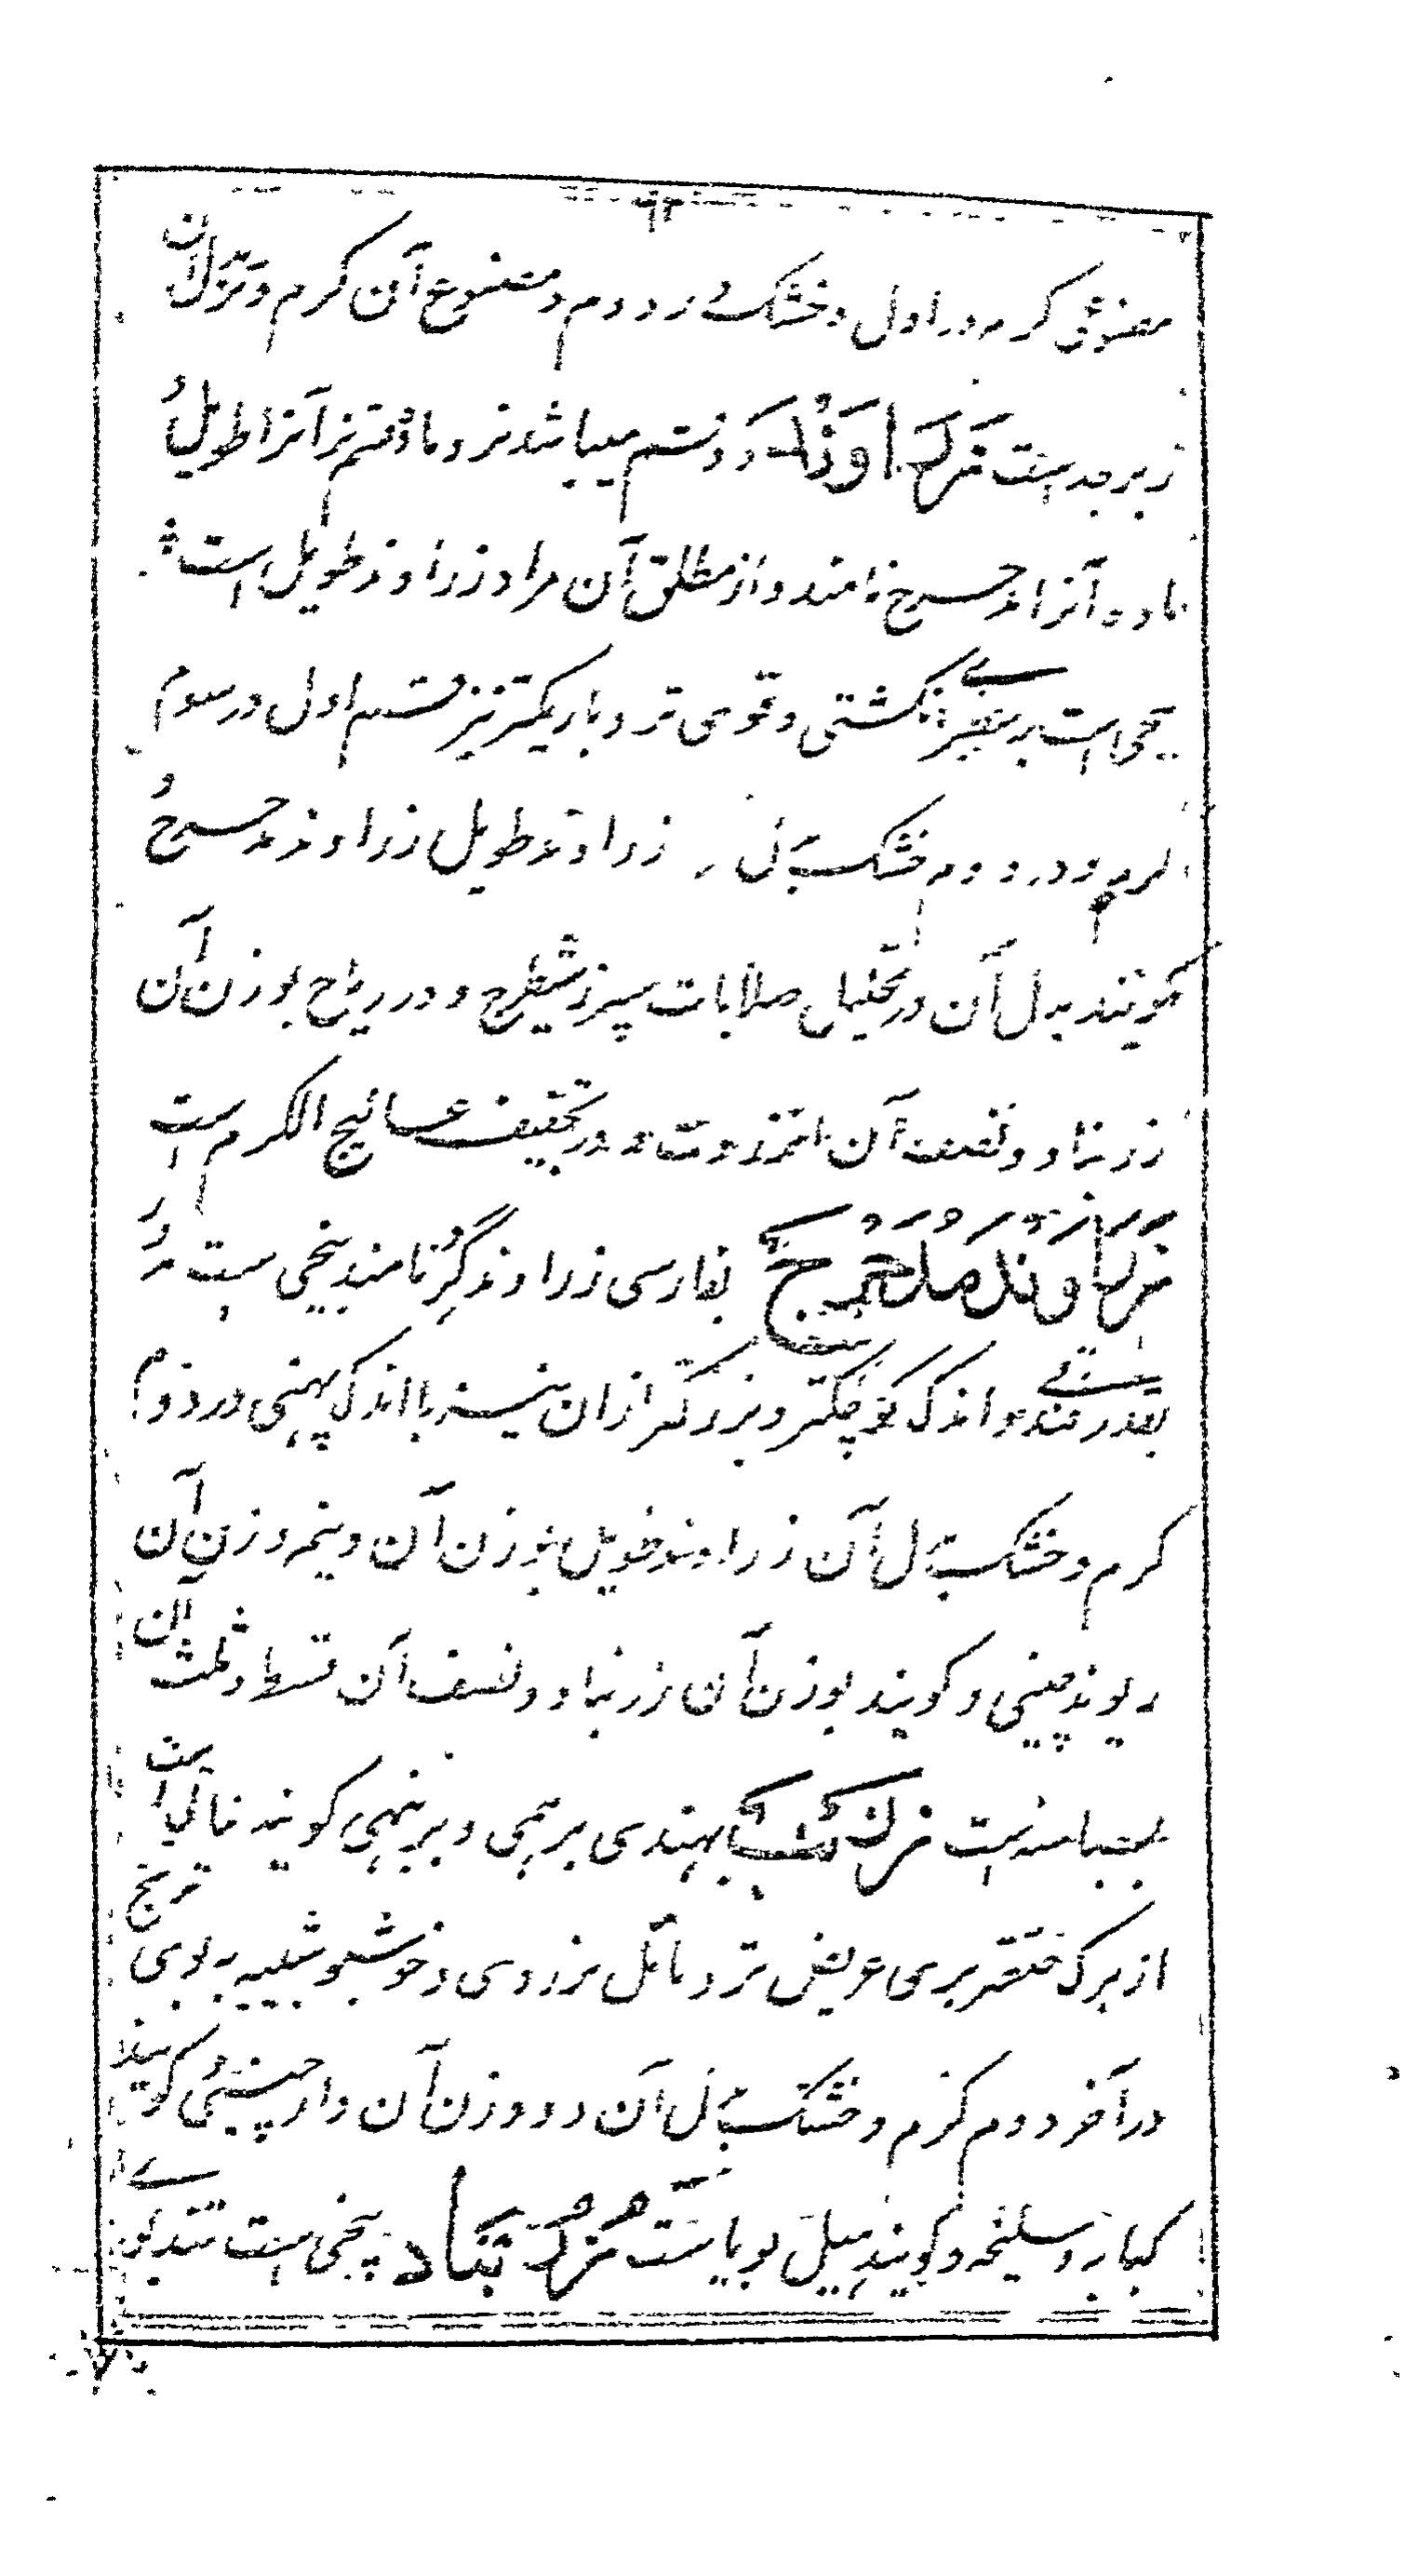 ۹۲
معشوق گرم در اول و خشک در دوم و مصنوع آن گرم و تر بدل آن
زبرجد است زراوند دو قسم میباشد نر و ماده قسم نر آنرا طویل و
ماده آنرا مدحرج نامند و از مطلق آن مراد زراوند طویل است
بیخی است بسطبری انگشتی و قوی تر و باریکتر نیز قسم اول در سوم
گرم و در دوم خشک بدل زراوند طویل زراوند مدحرج و
گویند بدل آن در تحلیل صلابات سپرز شیطرج و در ریاح بوزن آن
زرنباد و نصف آن انزروت و در تجفیف عسالیج الکرم است
زراوند مدحرج بفارسی زراوند گرد نامند بیخی ست مدور
بقدر فندقی و اندک کوچکتر و بزرگتر از ان نیز با اندک پهنی در دوم
گرم و خشک بدل آن زراوند طویل بوزن آن و نیم وزن آن
ریوند چینی و گویند بوزن آن زرنباد و نصف آن قسط و ثلث آن
بسباسه است زرنب بهندی برہمی و برنہی گویند
از برگ صعتر بری عریض تر و مائل بزردی و خوشبو شبیه به بوی ترنج
در آخر دوم گرم و خشک بدل آن دو وزن آن دارچینی و گویند
کبابه و سلیخه و گویند هیل بویاست زرنباد بیخی است تندبوی